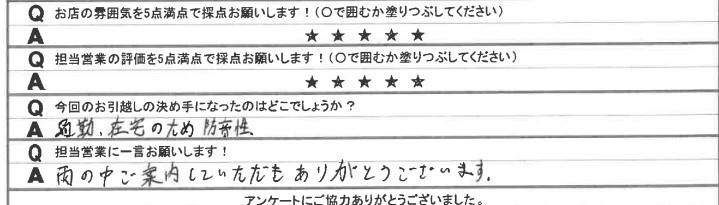 Q お店の雰囲気を5点満点で採点お願いします！（〇で囲むか塗りつぶしてください）
A ★ ★ ★ ★ ★
Q 担当営業の評価を5点満点で採点お願いします！（〇で囲むか塗りつぶしてください）
A ★ ★ ★ ★ ★
Q 今回のお引越しの決め手になったのはどこでしょうか？
A 通勤、在宅のため防音性
Q 担当営業に一言お願いします！
A 雨の中ご案内していただきありがとうございます。
アンケートにご協力ありがとうございました。